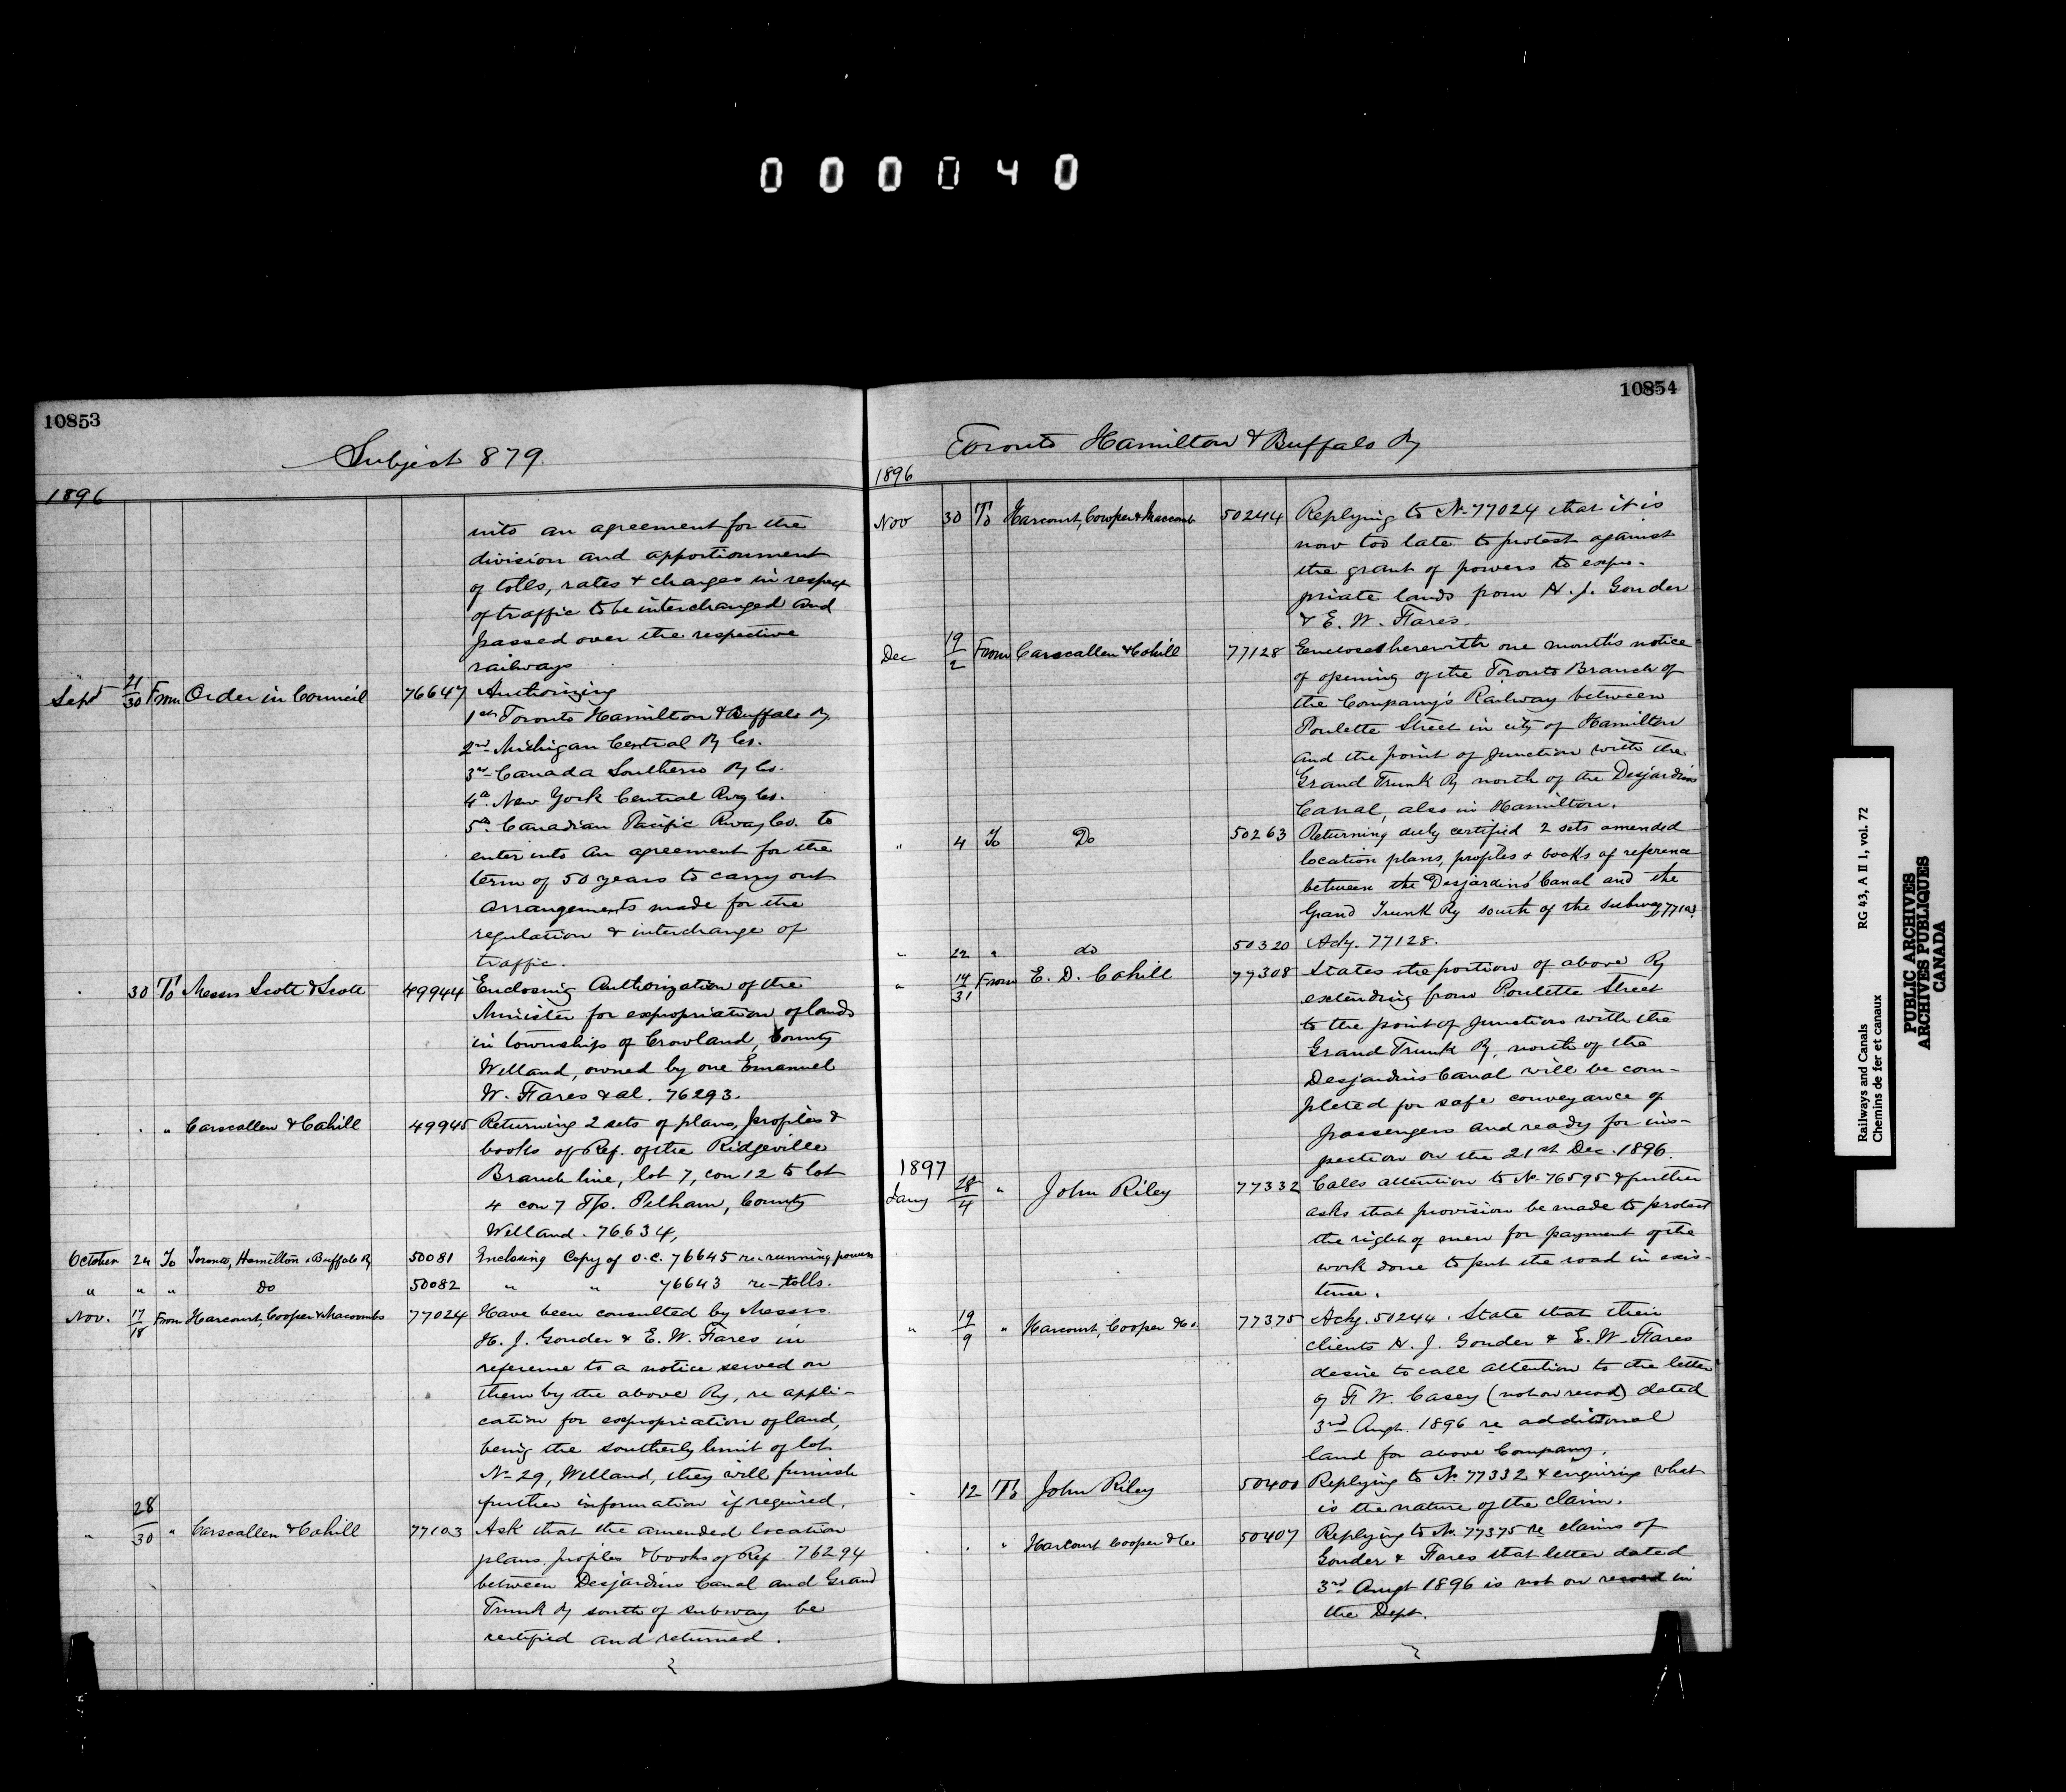 000040
10853
Subject 879.
1896
into an agreement for the
division and apportionment
of tolls, rates & charges in respect
of traffic to be interchanged and
passed over the respective
railways
Sept 21/30 From Order in Council 76647 Authorizing
1st Toronto Hamilton & Buffalo Ry
2nd Michigan Central Ry Co.
3rd Canada Southern Ry Co.
4th New York Central Rwy Co.
5th Canadian Pacific Rway Co. to
enter into an agreement for the
term of 50 years to carry out
arrangements made for the
regulation & interchange of
traffic.
" 30 To Messrs Scott & Scott 49944 Enclosing Authorization of the
Minister for expropriation of lands
in townships of Crowland, County
Welland, owned by one Emanuel
W. Fares & al. 76293.
" " " Carscallen & Cahill 49945 Returning 2 sets of plans, profiles &
books of Ref. of the Ridgeville
Branch line, lot 7, con 12 to lot
4 con 7 Tp. Pelham, County
Welland. 76634,
October 24 To Toronto, Hamilton & Buffalo Ry 50081 Enclosing Copy of O.C. 76645 re-running powers
" " " Do 50082 " " 76643 re-tolls.
Nov. 17/18 From Harcourt, Cooper & Macoombs 77024 Have been consulted by Messrs.
H. J. Gonder & E. W. Fares in
reference to a notice served on
them by the above Ry, re appli-
cation for expropriation of land,
being the southerly limit of lot
No 29, Welland, they will furnish
further information if required.
" 28/30 " Carscallen & Cahill 77103 Ask that the amended location
plans, profiles & books of Ref. 76294
between Desjardins Canal and Grand
Trunk Ry south of subway be
certified and returned.
10854
Toronto Hamilton & Buffalo Ry
1896
Nov 30 To Harcourt, Cowper & Macoomb 50244 Replying to No 77024 that it is
now too late to protest against
the grant of powers to expro-
priate lands from H. J. Gonder
& E. W. Fares.
Dec 19/2 From Carscallen & Cahill 77128 Encloses herewith one month's notice
of opening of the Toronto Branch of
the Company's Railway between
Poulette Street in city of Hamilton
and the point of junction with the
Grand Trunk Ry north of the Desjardins
Canal, also in Hamilton.
" 4 To Do 50263 Returning duly certified 2 sets amended
location plans, profiles & books of reference
between the Desjardins' Canal and the
Grand Trunk Ry south of the subway, 77103
" 22 " do 50320 Ackg. 77128.
" 14/31 From E. D. Cahill 77308 States the portion of above Ry
extending from Poulette Street
to the point of junction with the
Grand Trunk Ry, north of the
Desjardins Canal will be com-
pleted for safe conveyance of
passengers and ready for ins-
pection on the 21st Dec. 1896.
1897
Jany 28/4 " John Riley 77332 Calls attention to No 76595 & further
asks that provision be made to protect
the right of men for payment of the
work done to put the road in exis-
tence.
" 19/9 " Harcourt, Cooper & Co. 77375 Ackg. 50244. State that their
clients H. J. Gonder & E. W. Fares
desire to call attention to the letter
of F. W. Casey (not on record) dated
3rd Augt. 1896 re additional
land for above Company.
" 12 To John Riley 50400 Replying to No 77332 & enquiring what
is the nature of the claim.
" " " Harcourt Cooper & Co 50407 Replying to No 77375 re claims of
Gonder & Fares that letter dated
3rd Augt 1896 is not on record in
the Dept.
Railways and Canals RG 43, A II 1, vol. 72
Chemins de fer et canaux
PUBLIC ARCHIVES
ARCHIVES PUBLIQUES
CANADA